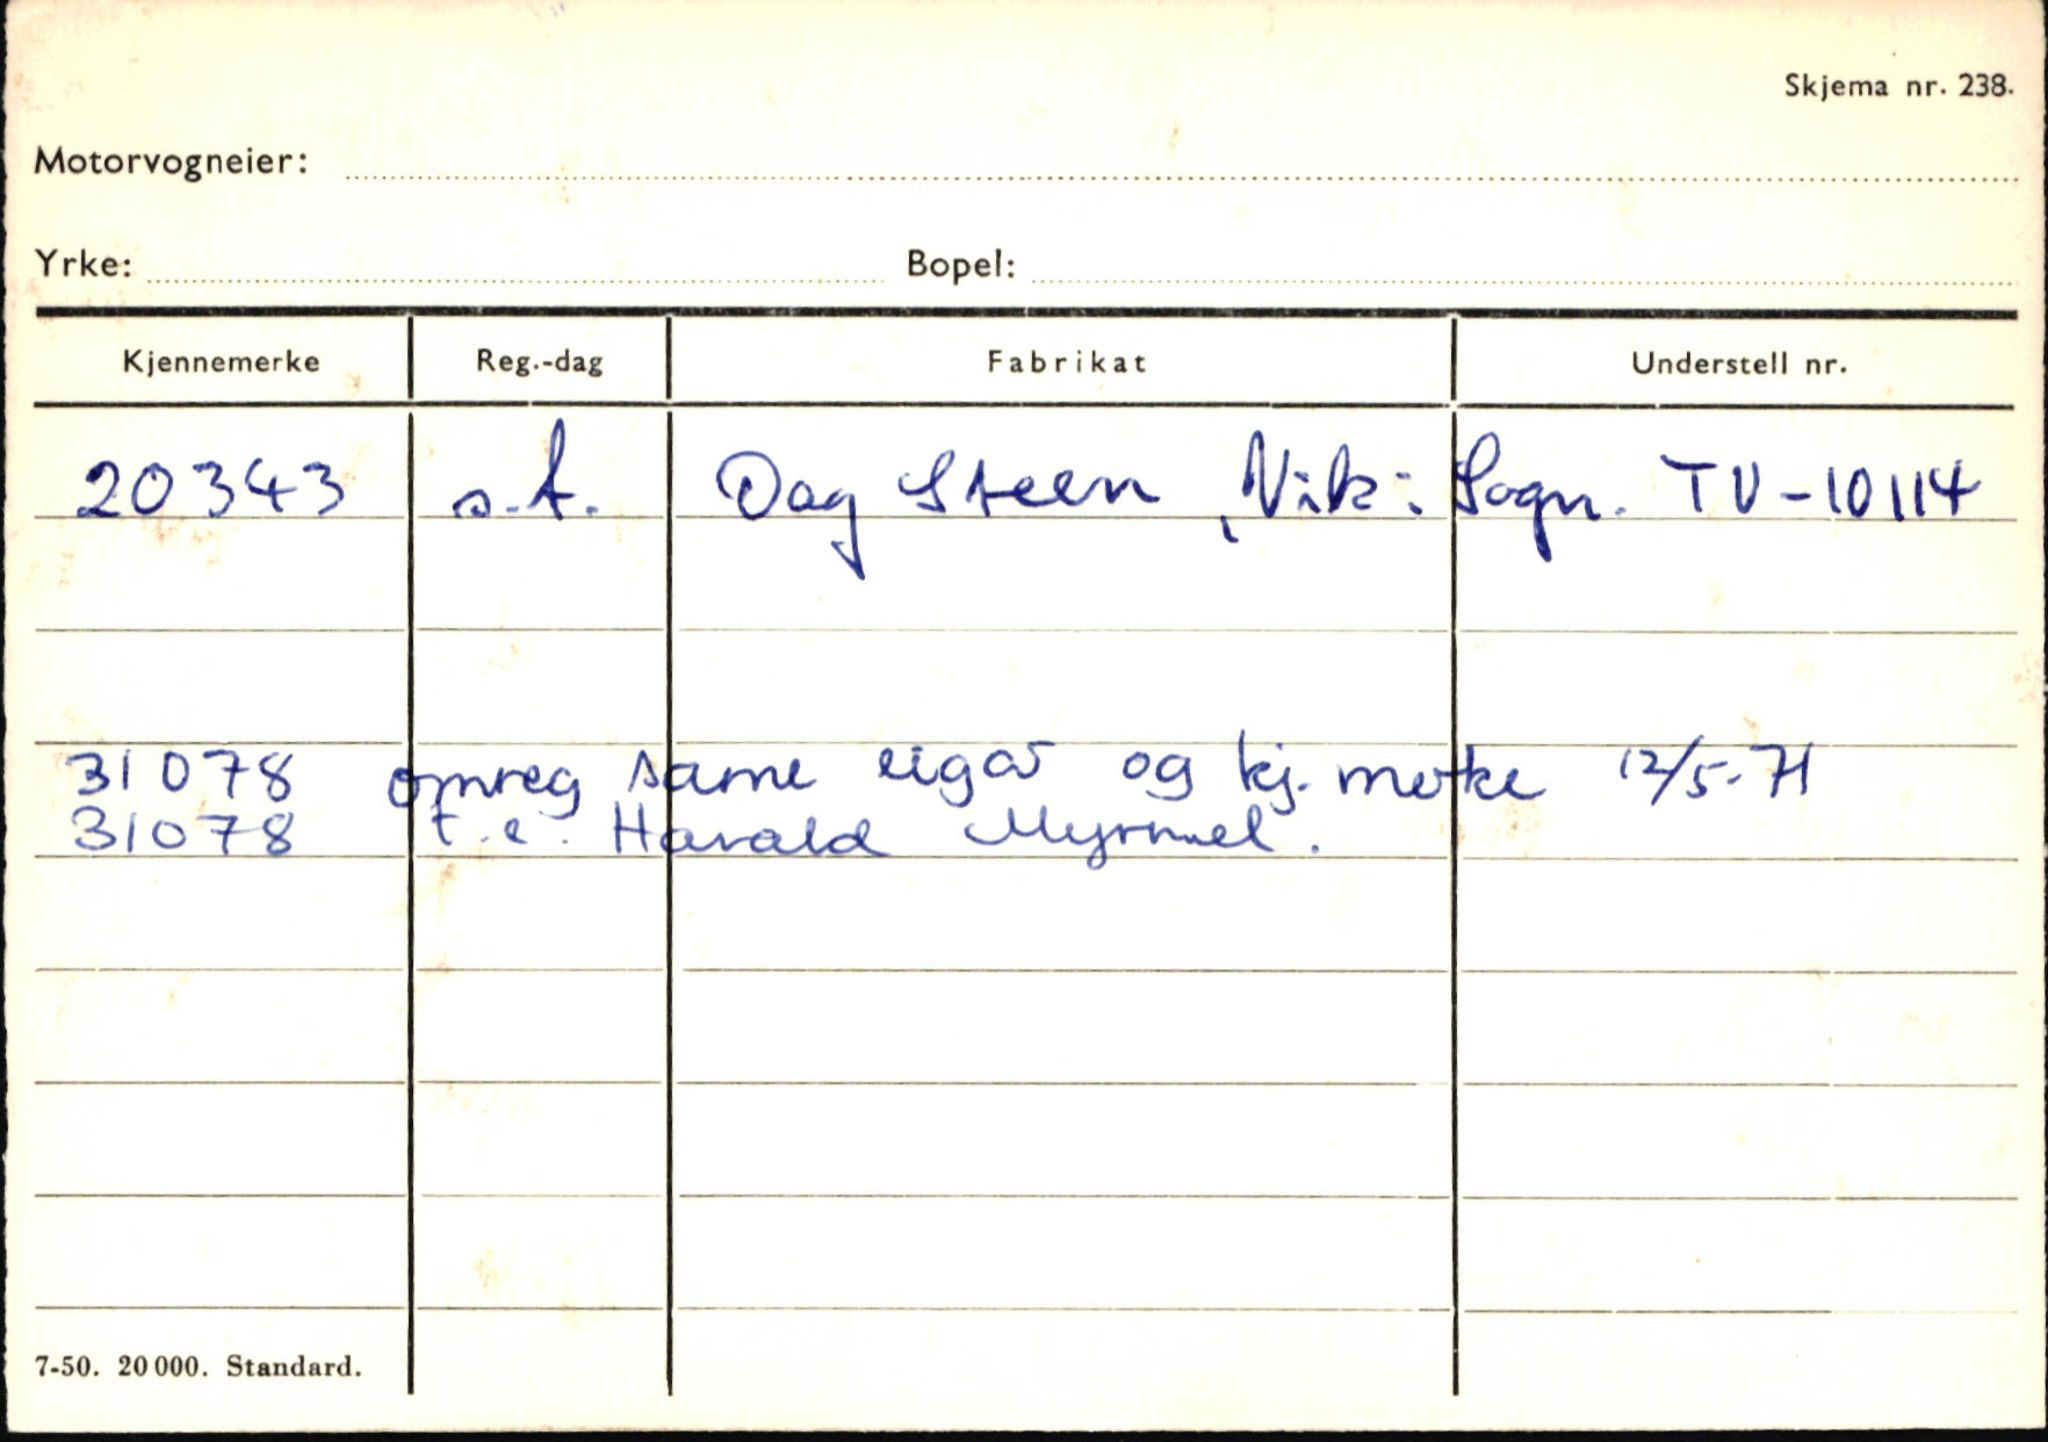 Skjema nr. 238.
Motorvogneier:
Yrke: Bopel:
Kjennemerke Reg.-dag Fabrikat Understell nr.
20343 s.t. Dag Steen, Vik i Sogn. TV-10114
31078 omreg same eigar og kj. merke 12/5-71
31078 t.e. Harald Myrmel.
7-50. 20 000. Standard.